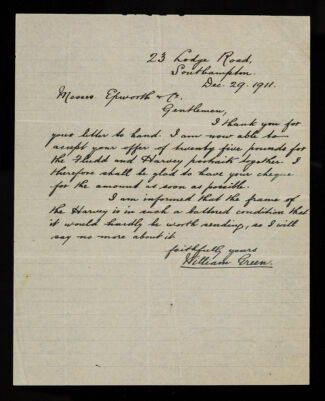 23 Lodge Road,
Southampton
Dec. 29. 1911.
Messrs Epworth & Co.
Gentlemen,
I thank you for
your letter to hand. I am now able to
accept your offer of twenty five pounds for
the Fludd and Harvey portraits together. I
therefore shall be glad to have your cheque
for the amount as soon as possible.
I am informed that the frame of
the Harvey is in such a battered condition that
it would hardly be worth sending, so I will
say no more about it
faithfully yours
William Green.